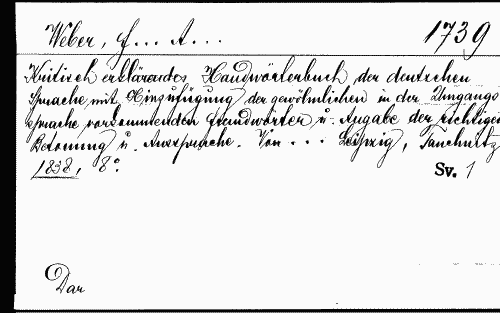 Weber, F... A... 1739
Kritisch erklärendes Handwörterbuch der deutschen
Sprache, mit Hinzufügung der gewöhnlichen in der Umgangs
sprache vorkommenden Fremdwörter u. Angabe der richtigen
Betonung u. Aussprache. Von ... Leipzig, Tauchnitz
1838, 8°.
Sv. 1
Dar